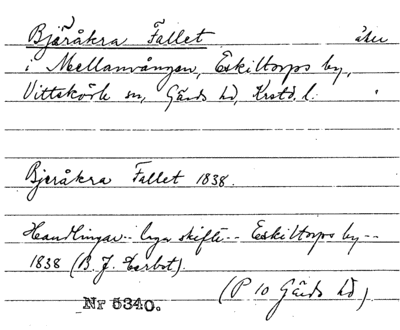 Bjäråkra Fallet åker
i Mellanvången, Eskiltorps by,
Vittskövle sn, Gärds hd, Krstd. l.
Bjeråkra Fallet 1838.
Handlingar -- laga skifte -- Eskiltorps by --
1838 (B. J.
(P 10 Gärds hd)
Nr 5340.